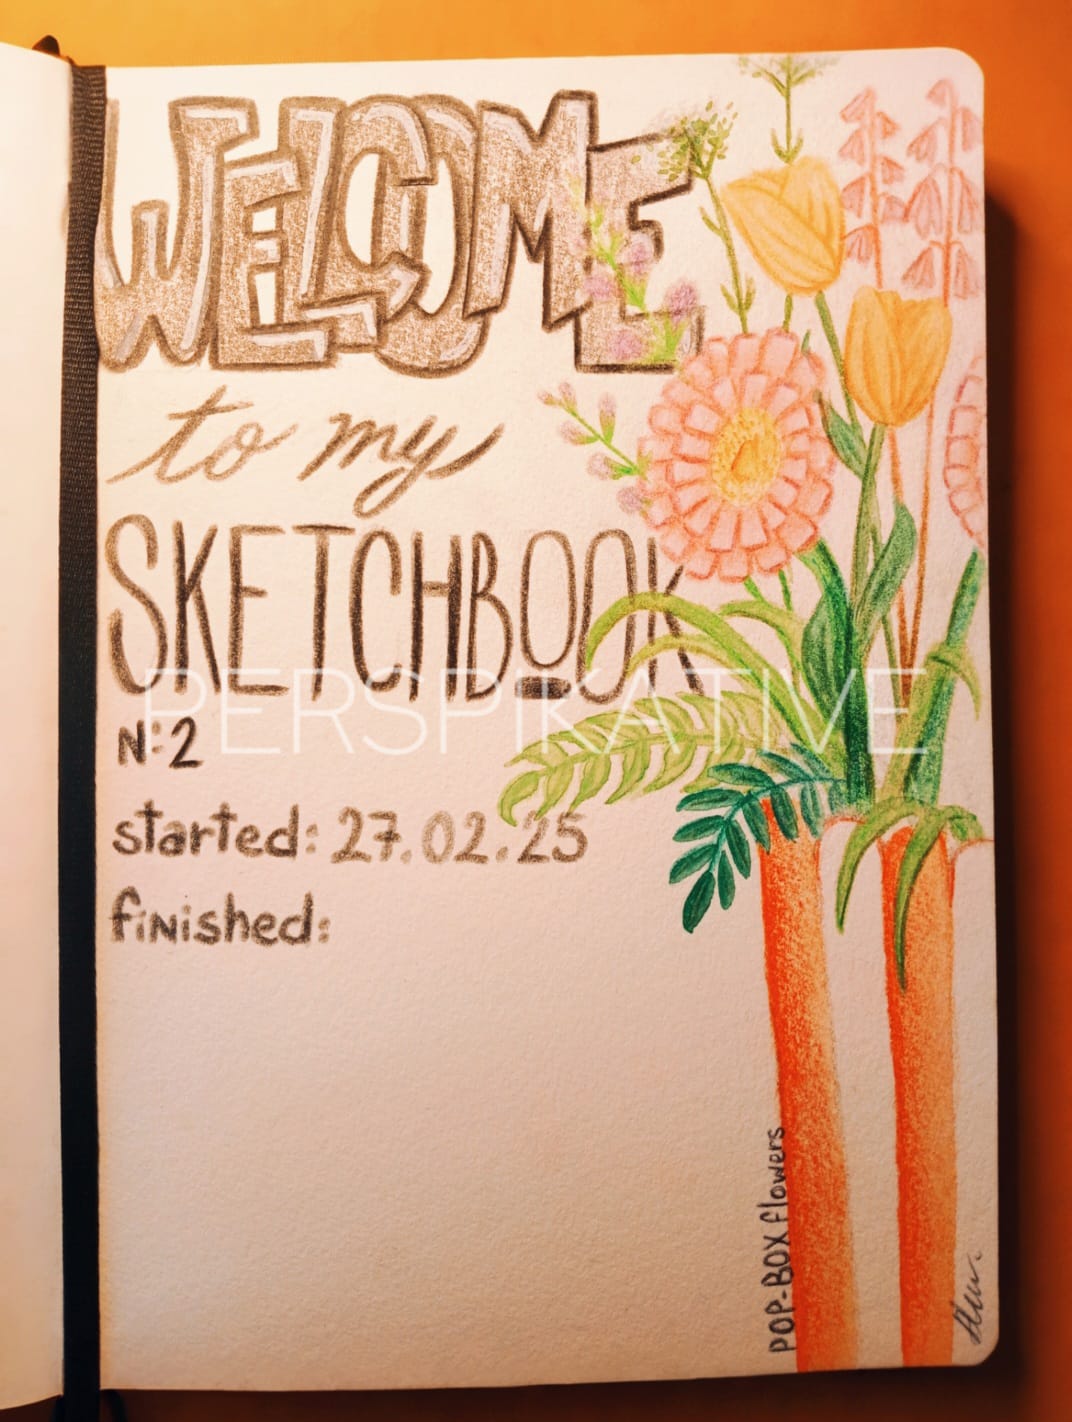 WELCOME
to my
SKETCHBOOK
PERSPIKATIVE
N:2
started: 27.02.25
finished:
POP-BOX flowers